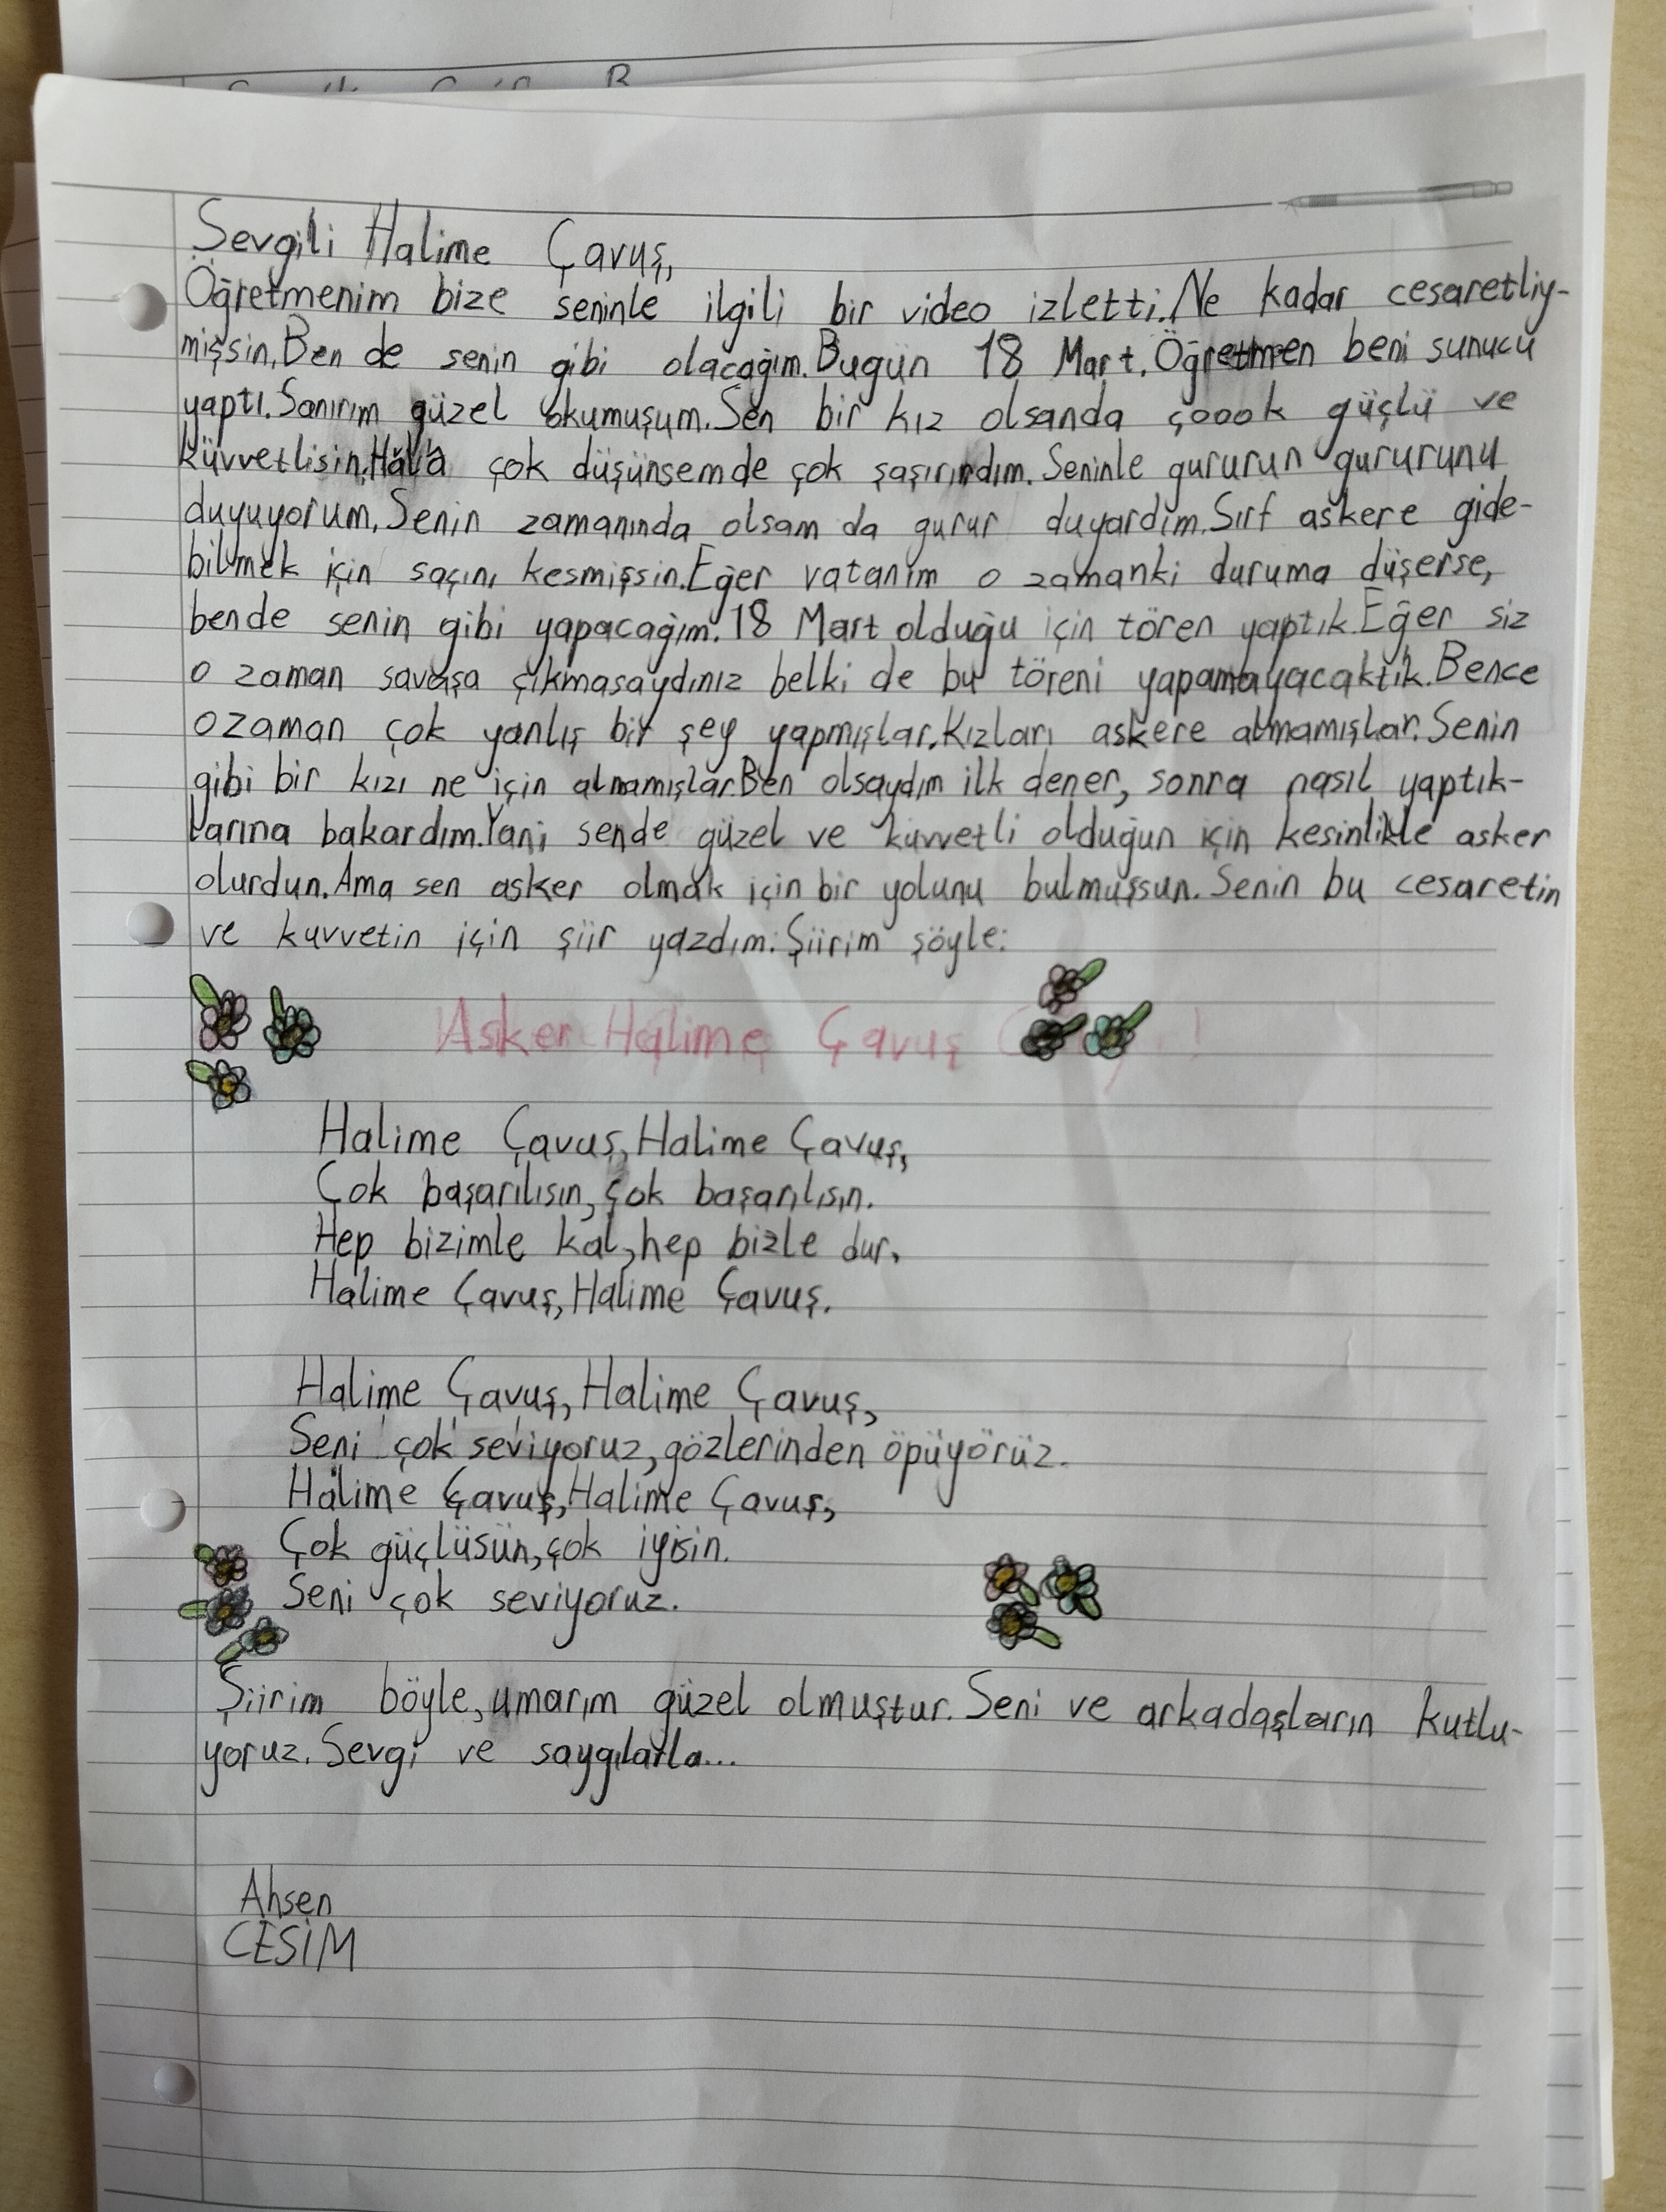 Sevgili Halime Çavuş,
Öğretmenim bize seninle ilgili bir video izletti. Ne kadar cesaretliy-
mişsin. Ben de senin gibi olacağım. Bugün 18 Mart. Öğretmen beni sunucu
yaptı. Sanırım güzel okumuşum. Sen bir kız olsanda çoook güçlü ve
küvvetlisin. Hâlâ çok düşünsemde çok şaşırırdım. Seninle gururun gururunu
duyuyorum. Senin zamanında olsam da gurur duyardım. Sırf askere gide-
bilmek için saçını kesmişsin. Eğer vatanım o zamanki duruma düşerse,
bende senin gibi yapacağım. 18 Mart olduğu için tören yaptık. Eğer siz
o zaman savaşa çıkmasaydınız belki de bu töreni yapamayacaktık. Bence
o zaman çok yanlış bir şey yapmışlar. Kızları askere almamışlar. Senin
gibi bir kızı ne için almamışlar. Ben olsaydım ilk dener, sonra nasıl yaptık-
larına bakardım. Yani sende güzel ve kuvvetli olduğun için kesinlikle asker
olurdun. Ama sen asker olmak için bir yolunu bulmuşsun. Senin bu cesaretin
ve kuvvetin için şiir yazdım. Şiirim şöyle:
Asker Halime Çavuş !
Halime Çavuş, Halime Çavuş,
Çok başarılısın, çok başarılısın.
Hep bizimle kal, hep bizle dur,
Halime Çavuş, Halime Çavuş.
Halime Çavuş, Halime Çavuş,
Seni çok seviyoruz, gözlerinden öpüyörüz.
Halime Çavuş, Halime Çavuş,
Çok güçlüsün, çok iyisin.
Seni çok seviyoruz.
Şiirim böyle, umarım güzel olmuştur. Seni ve arkadaşların kutlu-
yoruz. Sevgi ve saygılarla...
Ahsen
CESİM